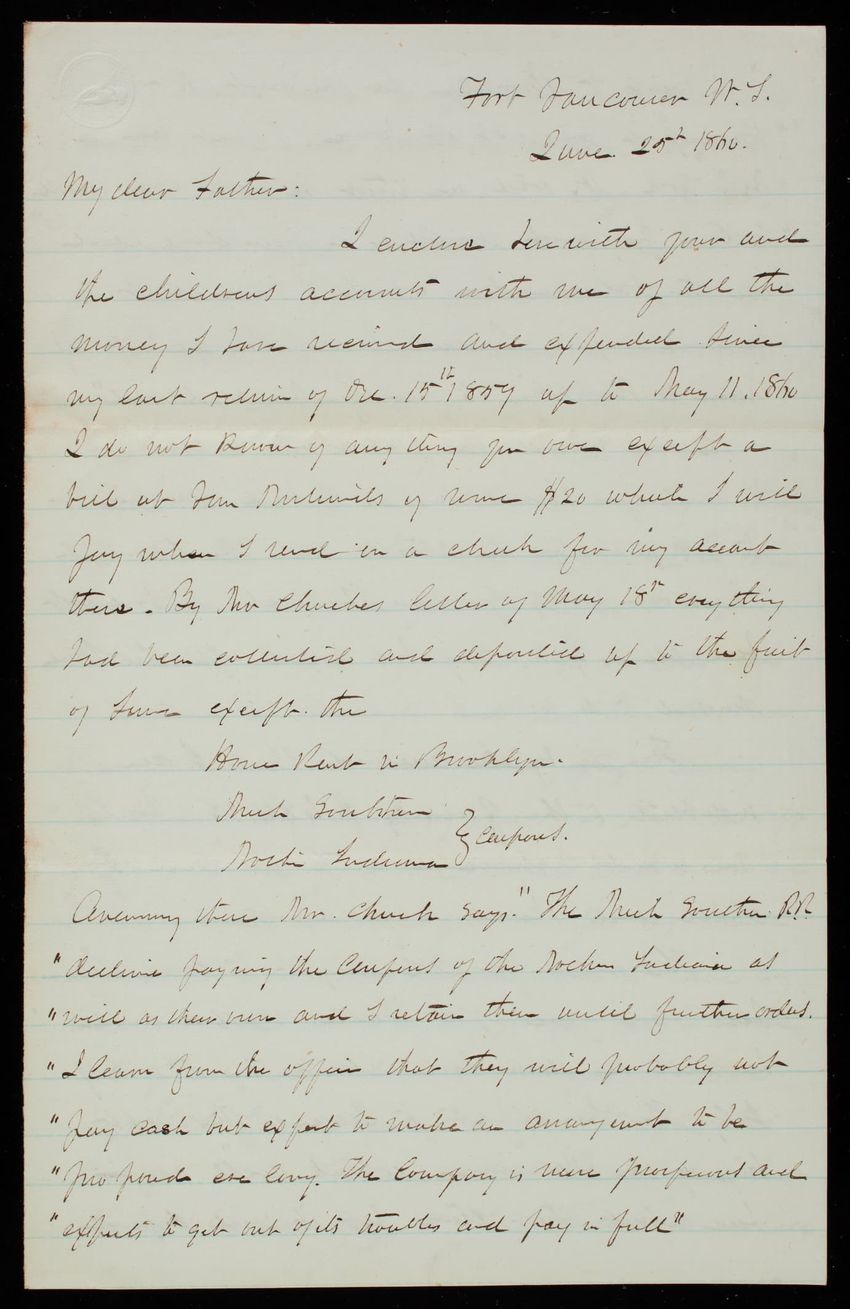 Fort Vancouver W.T.
June 25th 1860.
My dear Father:
I enclose herewith your and
the childrens accounts with me of all the
money I have received and expended since
my last return of Dec. 15th 1859 up to May 11. 1860
I do not know of any thing you owe except a
bill at of some $20 which I will
pay when I send on a check for my account
there. By Mr Churches letter of May 18th every thing
had been collected and deposited up to the first
of June except the
House Rent in Brooklyn.
Mich Southern
North Indiana } Coupons.
Concerning these Mr. Church says. "The Mich Southern R.R.
"decline paying the Coupons of the Northern Indiana as
"well as their own and I retain them until further orders.
"I learn from the office that they will probably not
"pay cash but expect to make an arrangement to be
"proposed ere long. The Company is more prosperous and
"expects to get out of its troubles and pay in full"